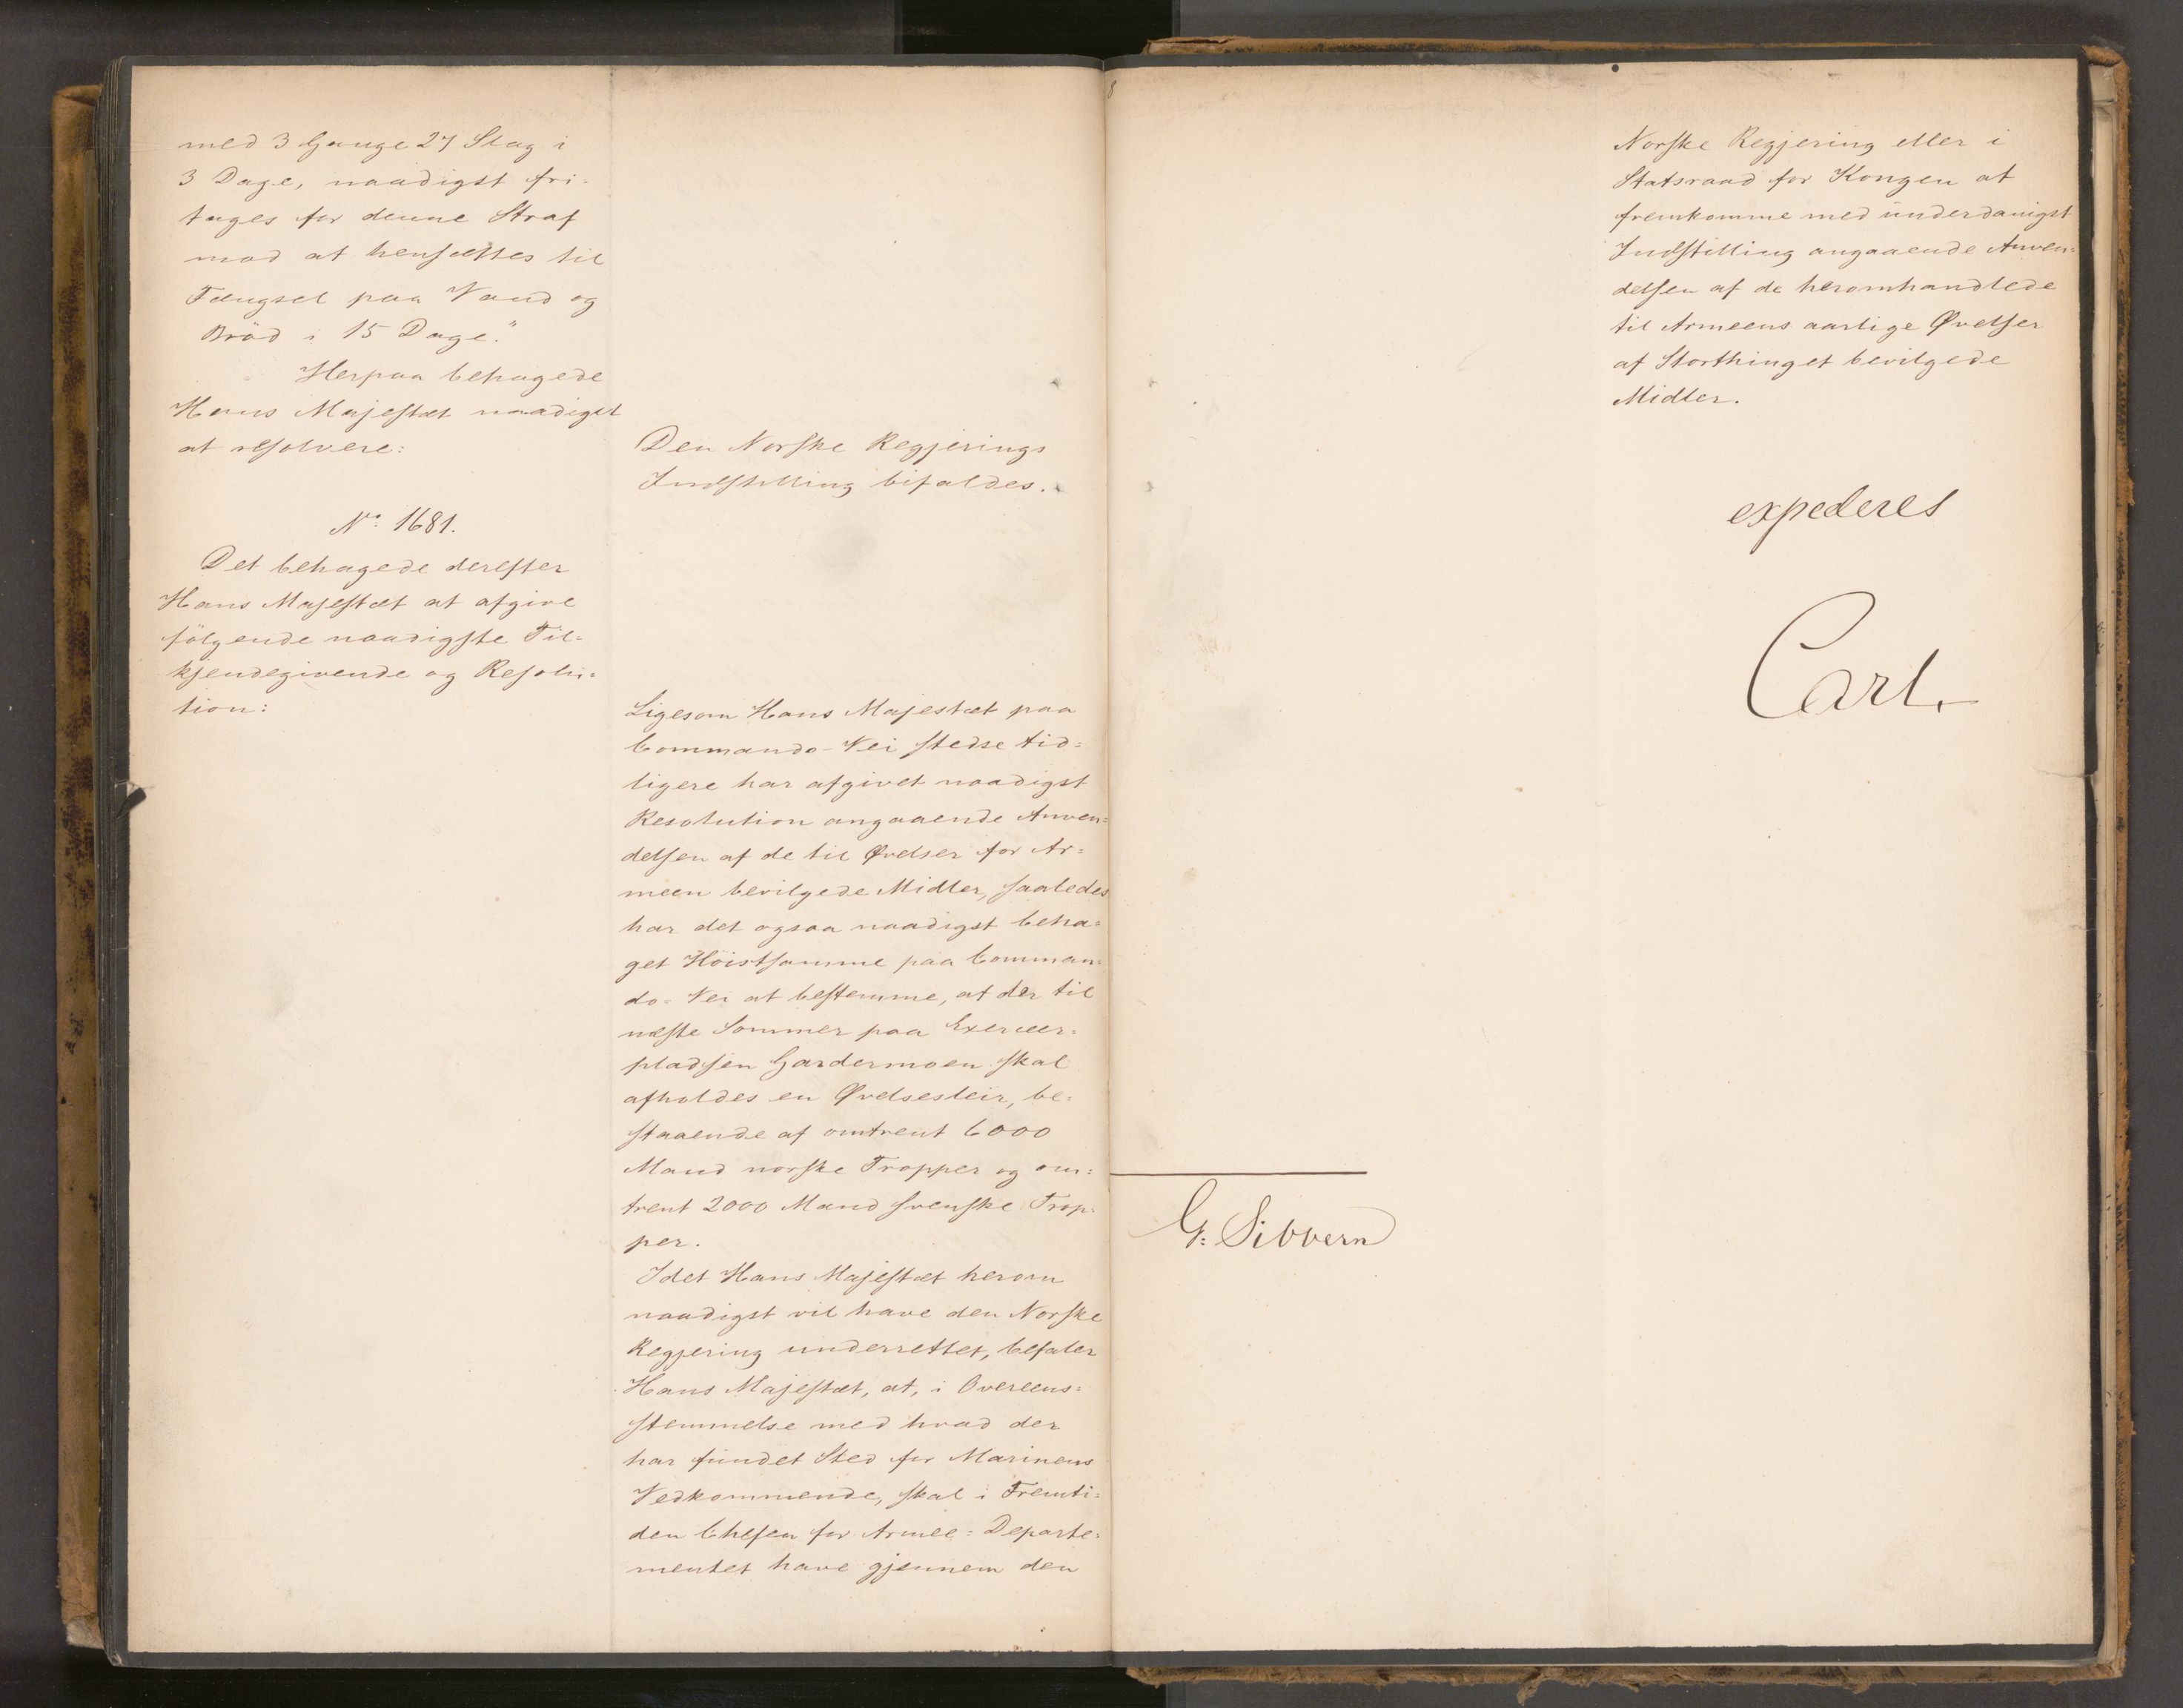 med 3 Gange 27 Slag i
3 Dage, naadigst fri-
tages for denne Straf
mod at hensættes til
Fængsel paa Vand og
Bröd i 15 Dage."
Herpaa behagede
Hans Majestæt naadigst
at resolvere:
Den Norske Regjerings
Indstilling bifaldes.
No. 1681.
Det behagede derefter
Hans Majestæt at afgive
fölgende naadigste Til=
kjendegivende og Resolu=
tion:
Ligesom Hans Majestæt paa
Commando-Vei stedse tid=
ligere har afgivet naadigst
Resolution angaaende Anven=
delsen af de til Øvelser for Ar=
meen bevilgede Midler, saaledes
har det ogsaa naadigst beha=
get Höistsamme paa Comman=
do=Vei at bestemme, at der til
næste Sommer paa Exerceer=
pladsen Gardermoen skal
afholdes en Øvelsesleir, be=
staaende af omtrent 6000
Mand norske Tropper og om=
trent 2000 Mand svenske Trop=
per.
Idet Hans Majestæt herom
naadigst vil have den Norske
Regjering underrettet, befaler
Hans Majestæt, at, i Overeens=
stemmelse med hvad der
har fundet Sted for Marinens
Vedkommende, skal i Fremti=
den Chefen for Armee=Departe=
mentet have gjennem den
8
Norske Regjering eller i
Statsraad for Kongen at
fremkomme med underdanigst
Indstilling angaaende Anven=
delsen af de heromhandlede
til Armeens aarlige Øvelser
af Storthinget bevilgede
Midler.
expederes
Carl.
G: Sibbern